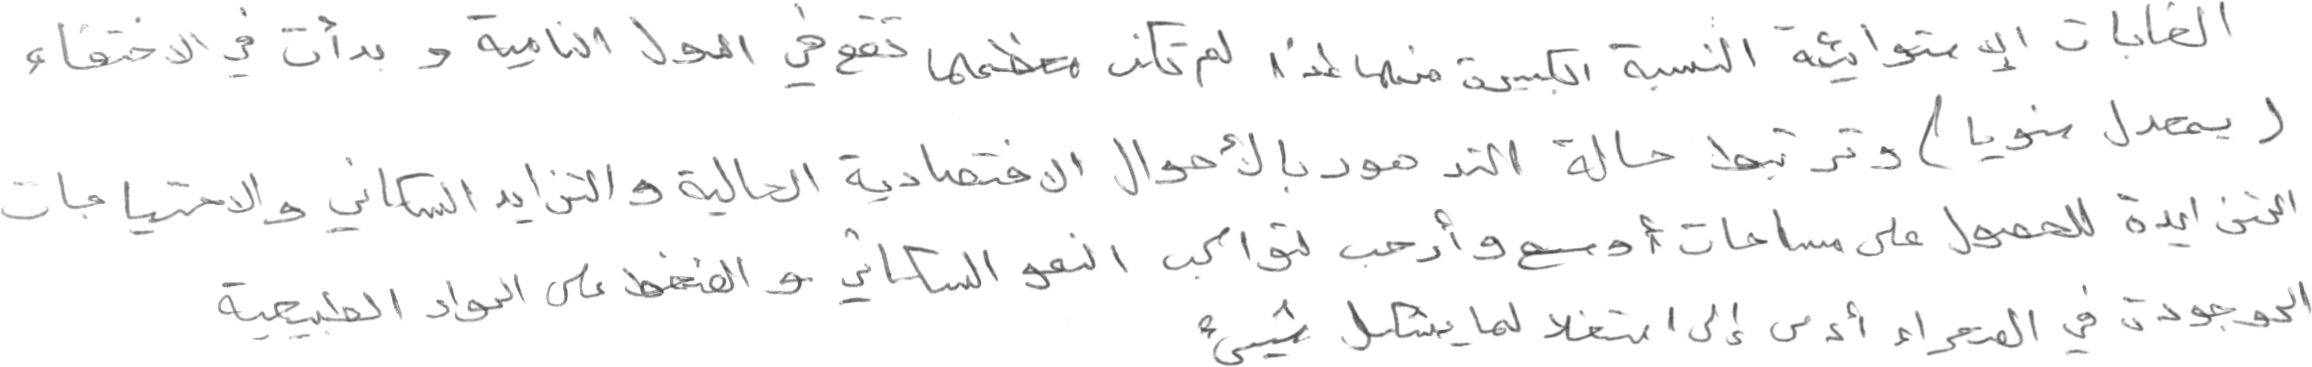 الغابات الإستوائية النسبة الكبيرة منها هذا لم تكن معظمها تقع في الدول النامية و بدأت في الاختفاء
(بمعدل سنويا) وترتبط حالة التدهور بالأحوال الاقتصادية الحالية والتزايد السكاني والاحتياجات
المتزايدة للحصول على مساحات أوسع وأرحب لتواكب النمو السكاني والضغط على المواد الطبيعية
الموجودة في الصحراء أدى إلى استغلا لها يشكل شيئ